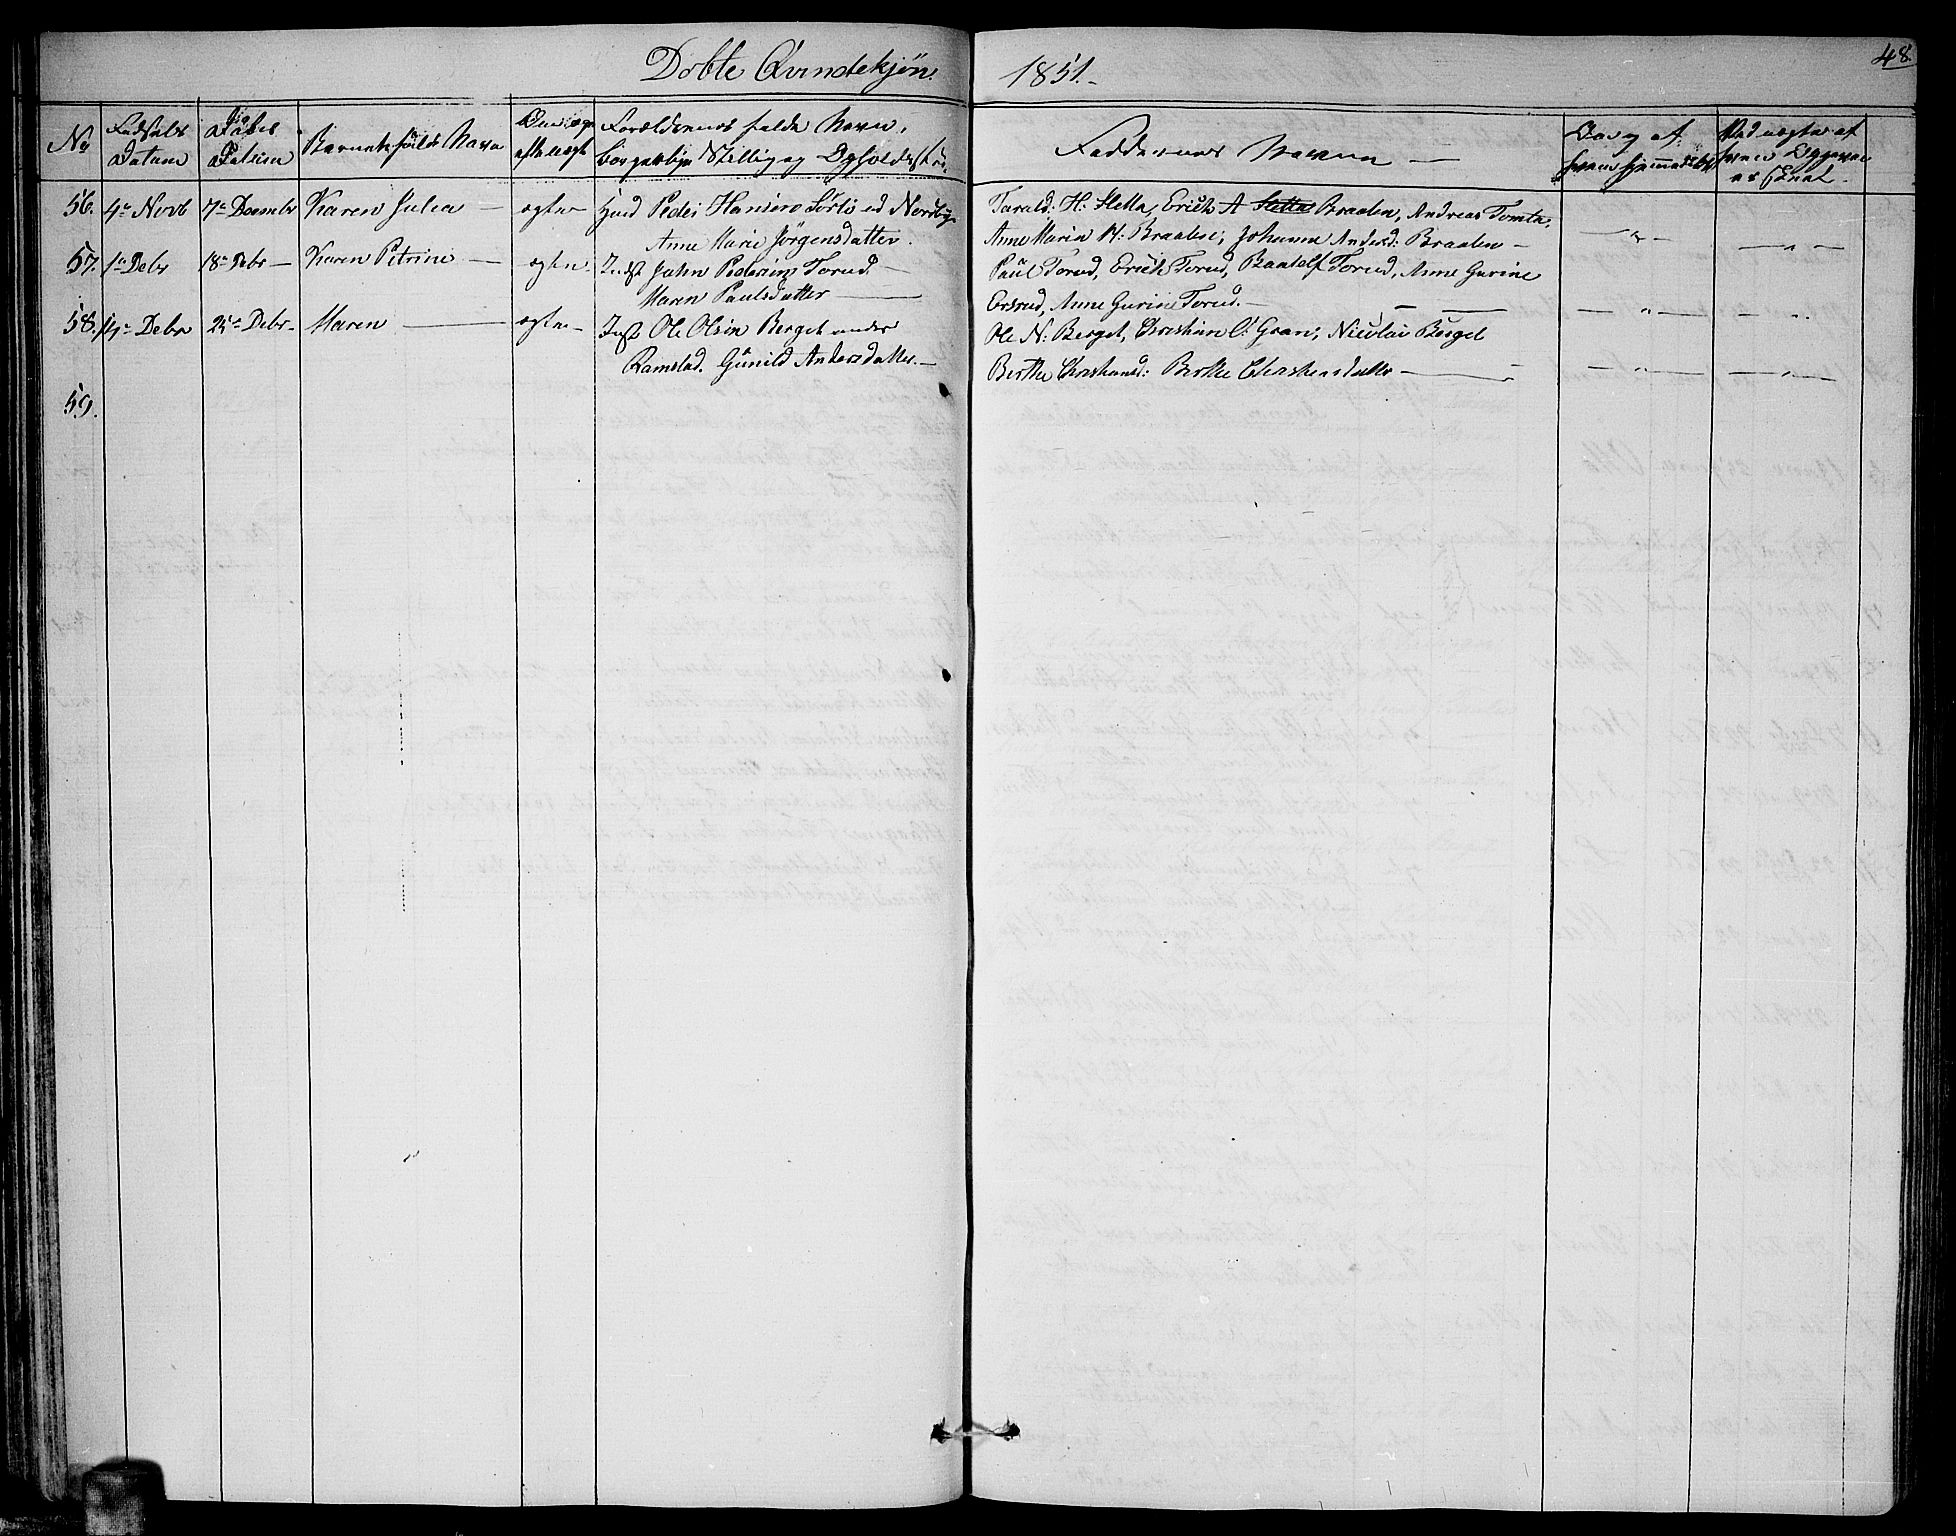 Døbte Qvindekjøn. 1851.- 48.
No Fødsels Datum Daabs Datum Barnets fulde Navn Om ægte eller uægte Forældrenes fulde Navn,
borgerlige Stilling og Opholdssted Faddernes Navne — Daab af
56. 4de Novb 7de Decembr Karen Julia — ægte Peder Hansen Sørli ed Nordby
Anne Marie Jörgensdatter.
Tarald: H: Sletta, Erich A Sletta Braaten, Andreas Tomta,
Anne Maria H: Braaten, Johanne Andersd: Braaten — — " — — " —
57. 1ste Debr 18de Debr — Karen Petrine — ægte. Indst John Pedersen Torud. —
Maren Paulsdatter —
Paul Torud, Erich Torud, Torud, Anne Gurine
Ersrud, Anne Gurine Torud. — — " — — " —
58. Debr 25de Debr — Maren — ægte — Indst Ole Olsen Berget under
Ramstad. Gunild Andersdatter. —
Ole N: Berget, Christian C: Gran, Nicolai Berget
Berthe Christiansd: Berthe Christiansdatter — — " — — " —
59.